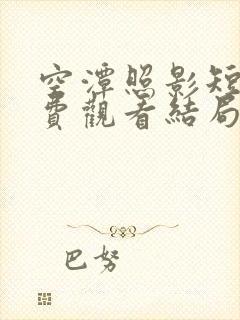 空潭照影短
費觀看結局
巴努